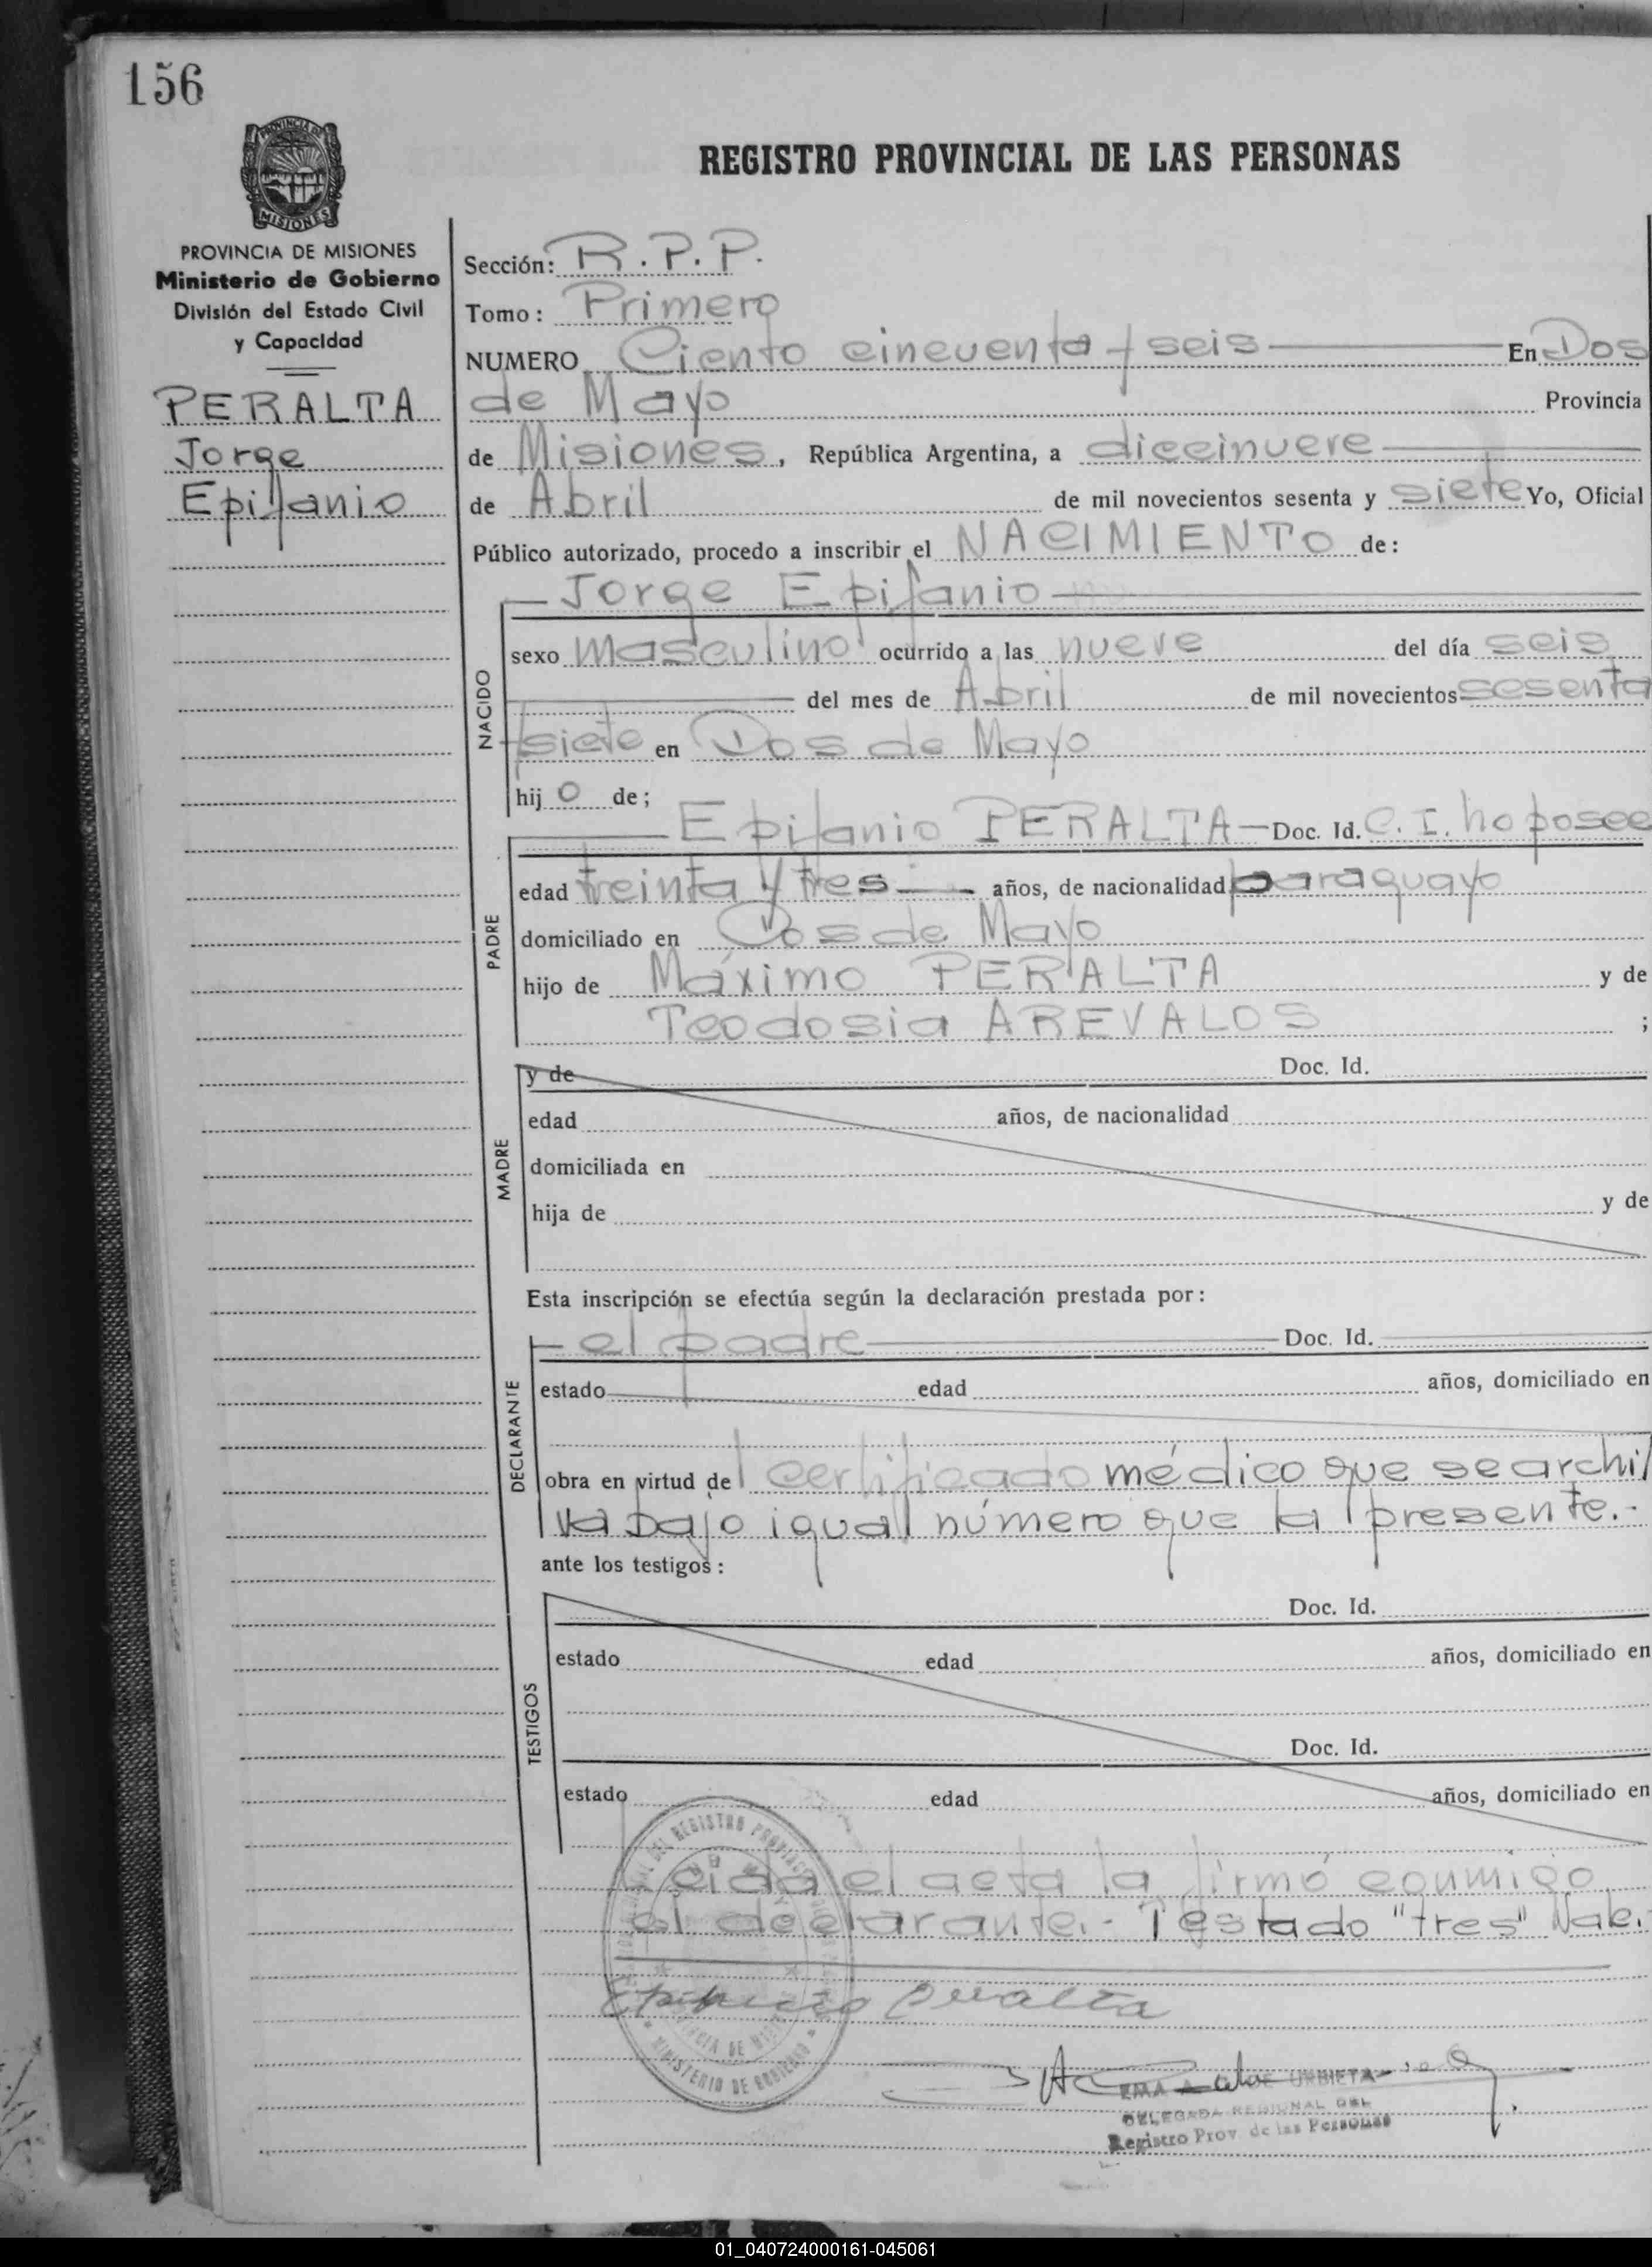 156
PROVINCIA DE
MISIONES
REGISTRO PROVINCIAL DE LAS PERSONAS
PROVINCIA DE MISIONES
Ministerio de Gobierno
División del Estado Civil
y Capacidad
PERALTA
Jorge
Epifanio
Sección: R.P.P.
Tomo: Primero
NUMERO Ciento cincuenta y seis En Dos
de Mayo Provincia
de Misiones, República Argentina, a diecinueve
de Abril de mil novecientos sesenta y siete Yo, Oficial
Público autorizado, procedo a inscribir el NACIMIENTO de:
NACIDO
Jorge Epifanio
sexo masculino ocurrido a las nueve del día seis
del mes de Abril de mil novecientos sesenta
y siete en Dos de Mayo
hijo de;
PADRE
Epifanio PERALTA Doc. Id. C. I. no posee
edad treinta y tres años, de nacionalidad paraguayo
domiciliado en Dos de Mayo
hijo de Máximo PERALTA y de
Teodosia AREVALOS ;
MADRE
y de Doc. Id.
edad años, de nacionalidad
domiciliada en
hija de y de
Esta inscripción se efectúa según la declaración prestada por:
DECLARANTE
el padre Doc. Id.
estado edad años, domiciliado en
obra en virtud de l certificado médico que se archi/
va bajo igual número que la presente.-
ante los testigos:
TESTIGOS
Doc. Id.
estado edad años, domiciliado en
Doc. Id.
estado edad años, domiciliado en
Leida el acta la firmó conmigo
el declarante.- Testado "tres" Vale.-
Epifanio Peralta
MINISTERIO DE GOBIERNO
EMA A. DE URBIETA
DELEGADA REGIONAL DEL
Registro Prov. de las Personas
01_040724000161-045061